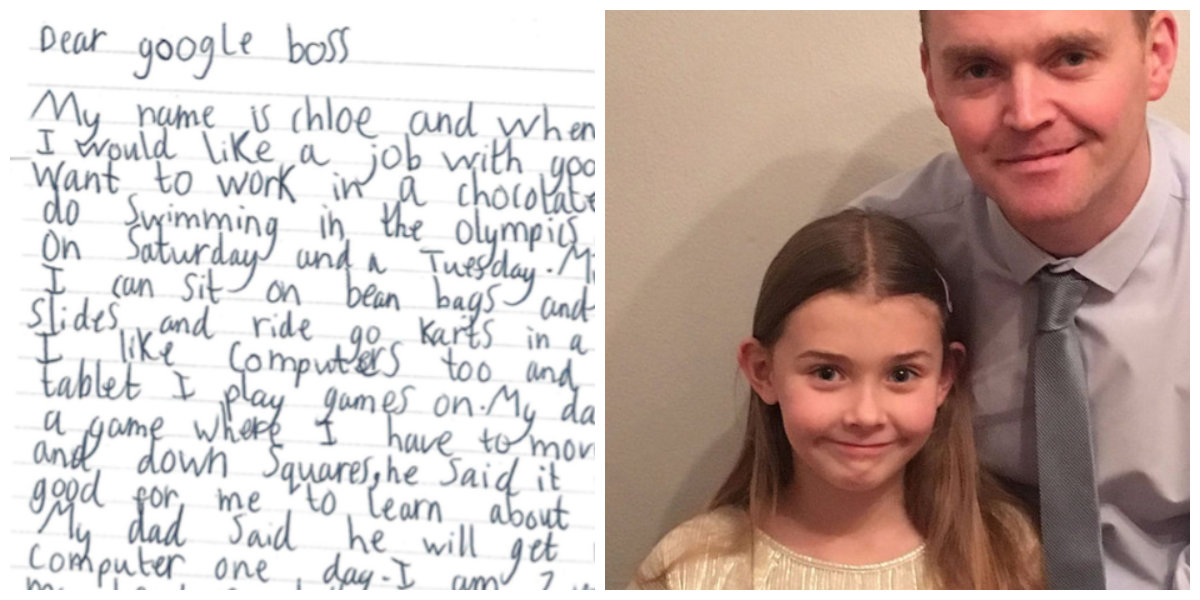 Dear google boss
My name is chloe and when
I would like a job with goo
want to work in a chocolate
do Swimming in the olympics
On Saturday and a Tuesday. M
I can sit on bean bags and
slides and ride go karts in a
I like computers too and
tablet I play games on. My da
a game where I have to mov
and down Squares, he said it
good for me to learn about
My dad said he will get
computer one day. I am 7